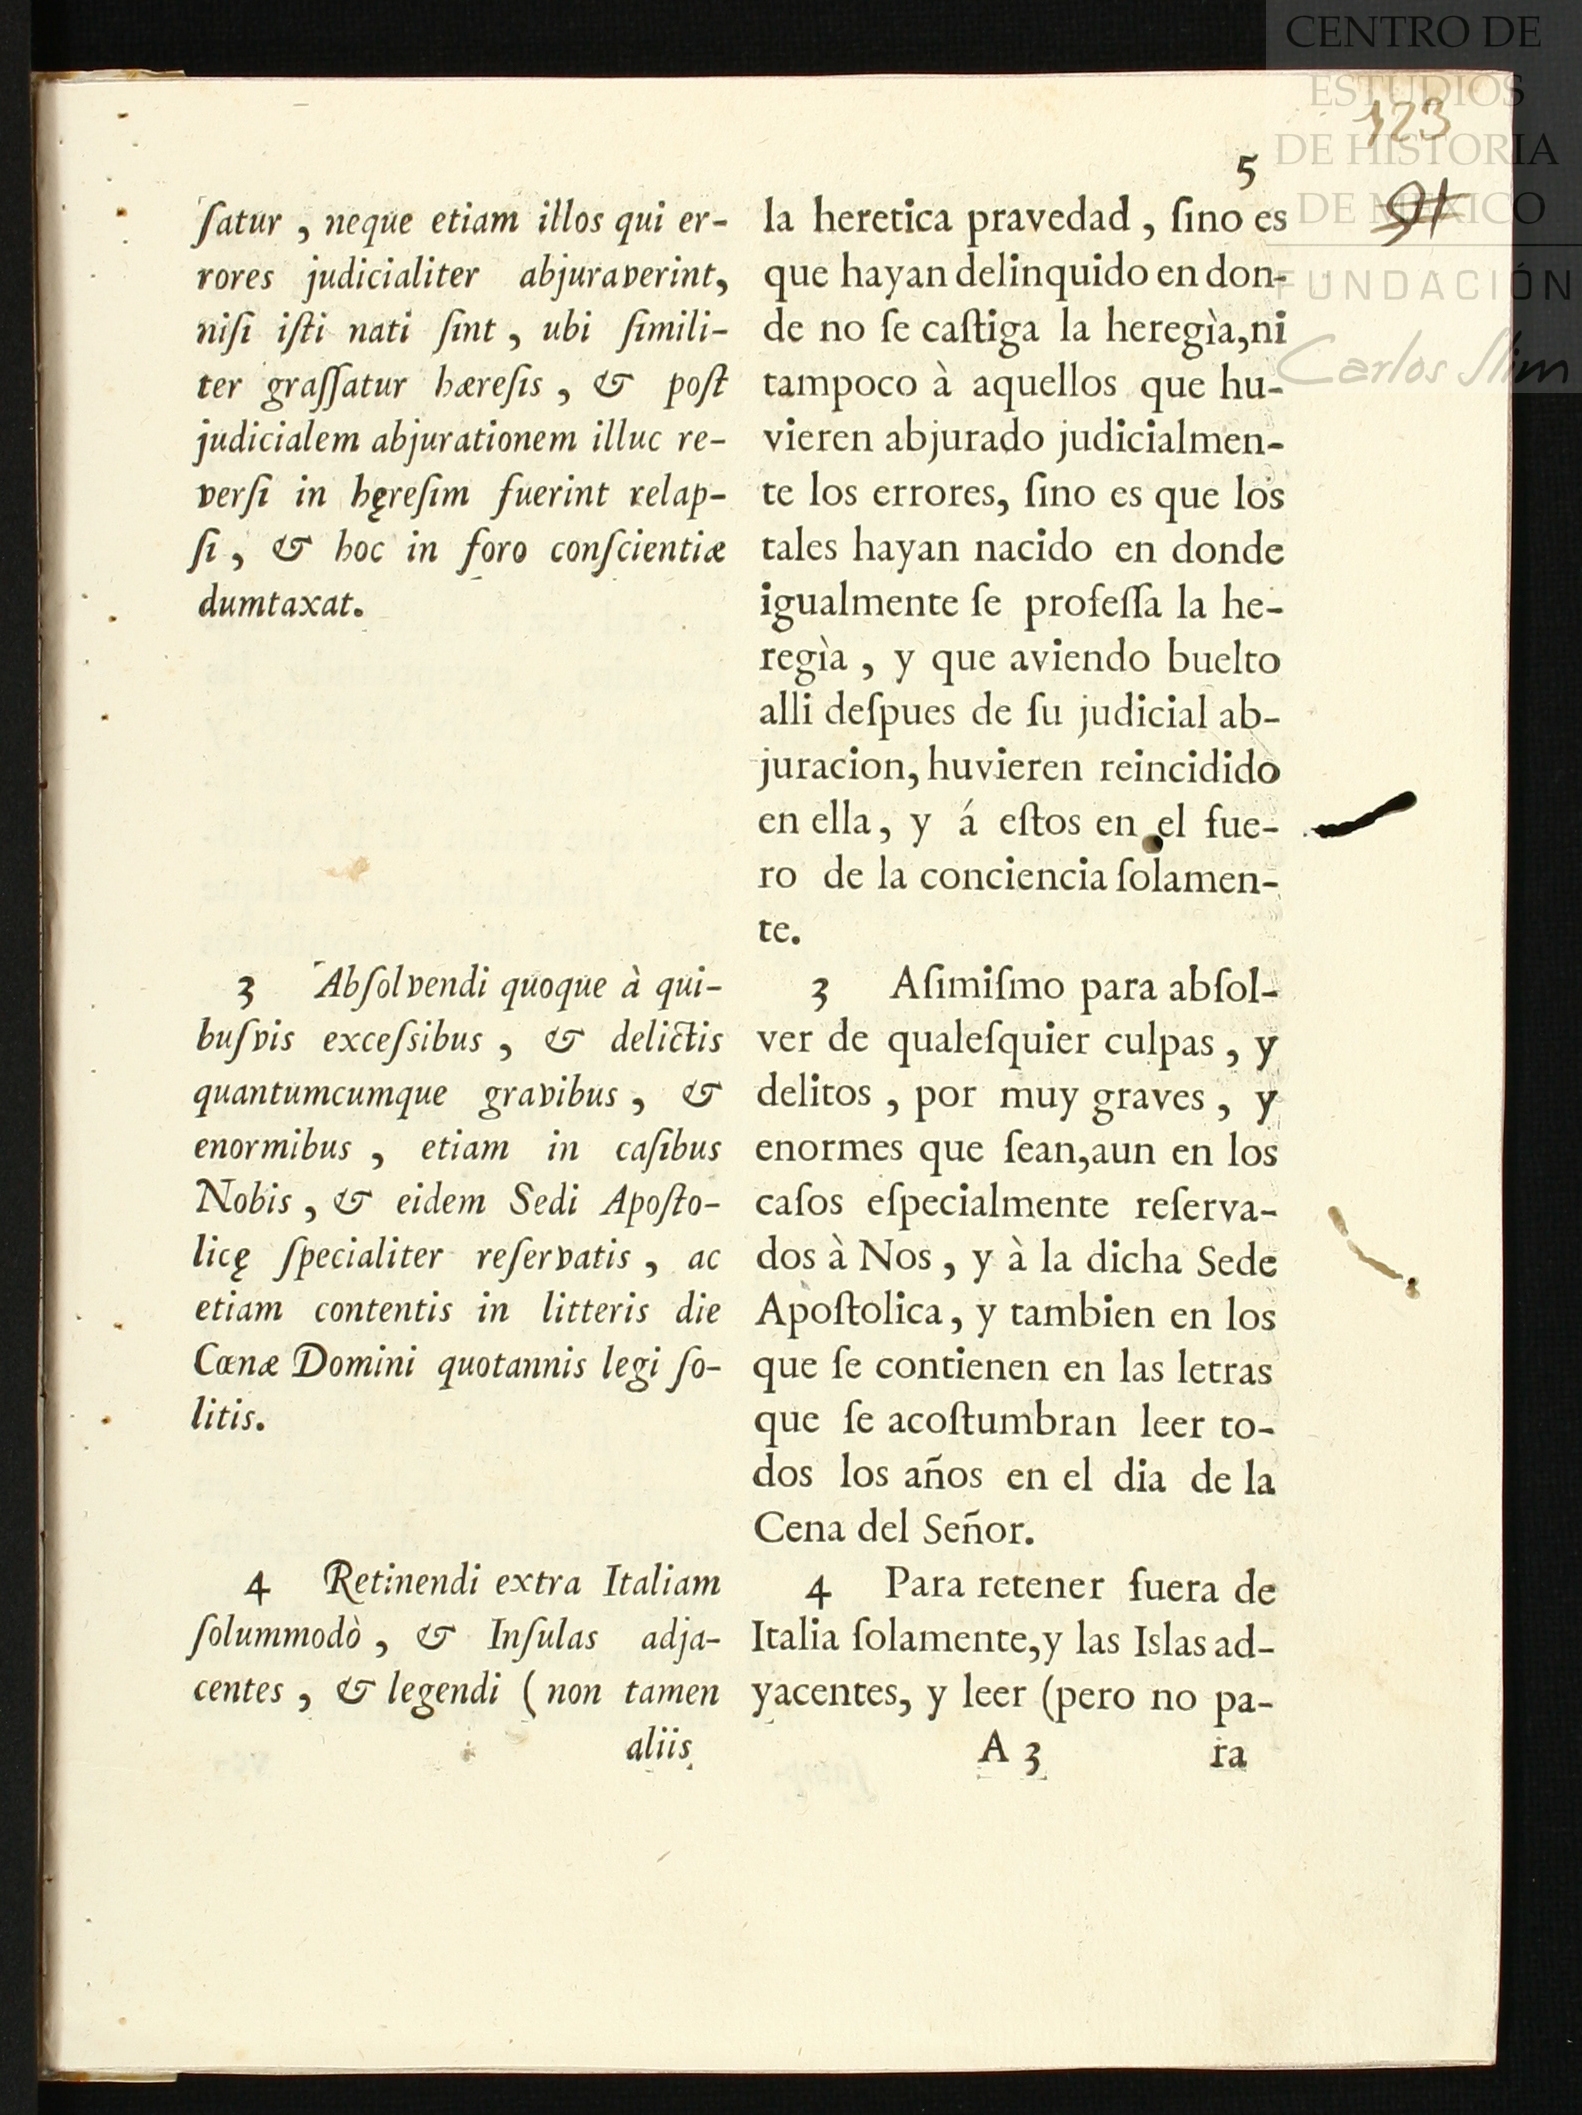 5
123
91
ſatur, neque etiam illos qui er-
rores judicialiter abjuraverint,
niſi iſti nati ſint, ubi ſimili-
ter graſſatur hæreſis, & poſt
judicialem abjurationem illuc re-
verſi in hęreſim fuerint relap-
ſi, & hoc in foro conſcientiæ
dumtaxat.
3 Abſolvendi quoque à qui-
buſvis exceſsibus, & delictis
quantumcumque gravibus, &
enormibus, etiam in caſibus
Nobis, & eidem Sedi Apoſto-
licę ſpecialiter reſervatis, ac
etiam contentis in litteris die
Cœnæ Domini quotannis legi ſo-
litis.
4 Retinendi extra Italiam
ſolummodò, & Inſulas adja-
centes, & legendi (non tamen
aliis
la heretica pravedad, ſino es
que hayan delinquido en don-
de no ſe caſtiga la heregìa,ni
tampoco à aquellos que hu-
vieren abjurado judicialmen-
te los errores, ſino es que los
tales hayan nacido en donde
igualmente ſe profeſſa la he-
regìa, y que aviendo buelto
alli deſpues de ſu judicial ab-
juracion, huvieren reincidido
en ella, y á eſtos en el fue-
ro de la conciencia ſolamen-
te.
3 Aſimiſmo para abſol-
ver de qualeſquier culpas, y
delitos, por muy graves, y
enormes que ſean,aun en los
caſos eſpecialmente reſerva-
dos à Nos, y à la dicha Sede
Apoſtolica, y tambien en los
que ſe contienen en las letras
que ſe acoſtumbran leer to-
dos los años en el dia de la
Cena del Señor.
4 Para retener fuera de
Italia ſolamente,y las Islas ad-
yacentes, y leer (pero no pa-
A 3 ra
CENTRO DE
ESTUDIOS
DE HISTORIA
DE MEXICO
FUNDACIÓN
Carlos Slim